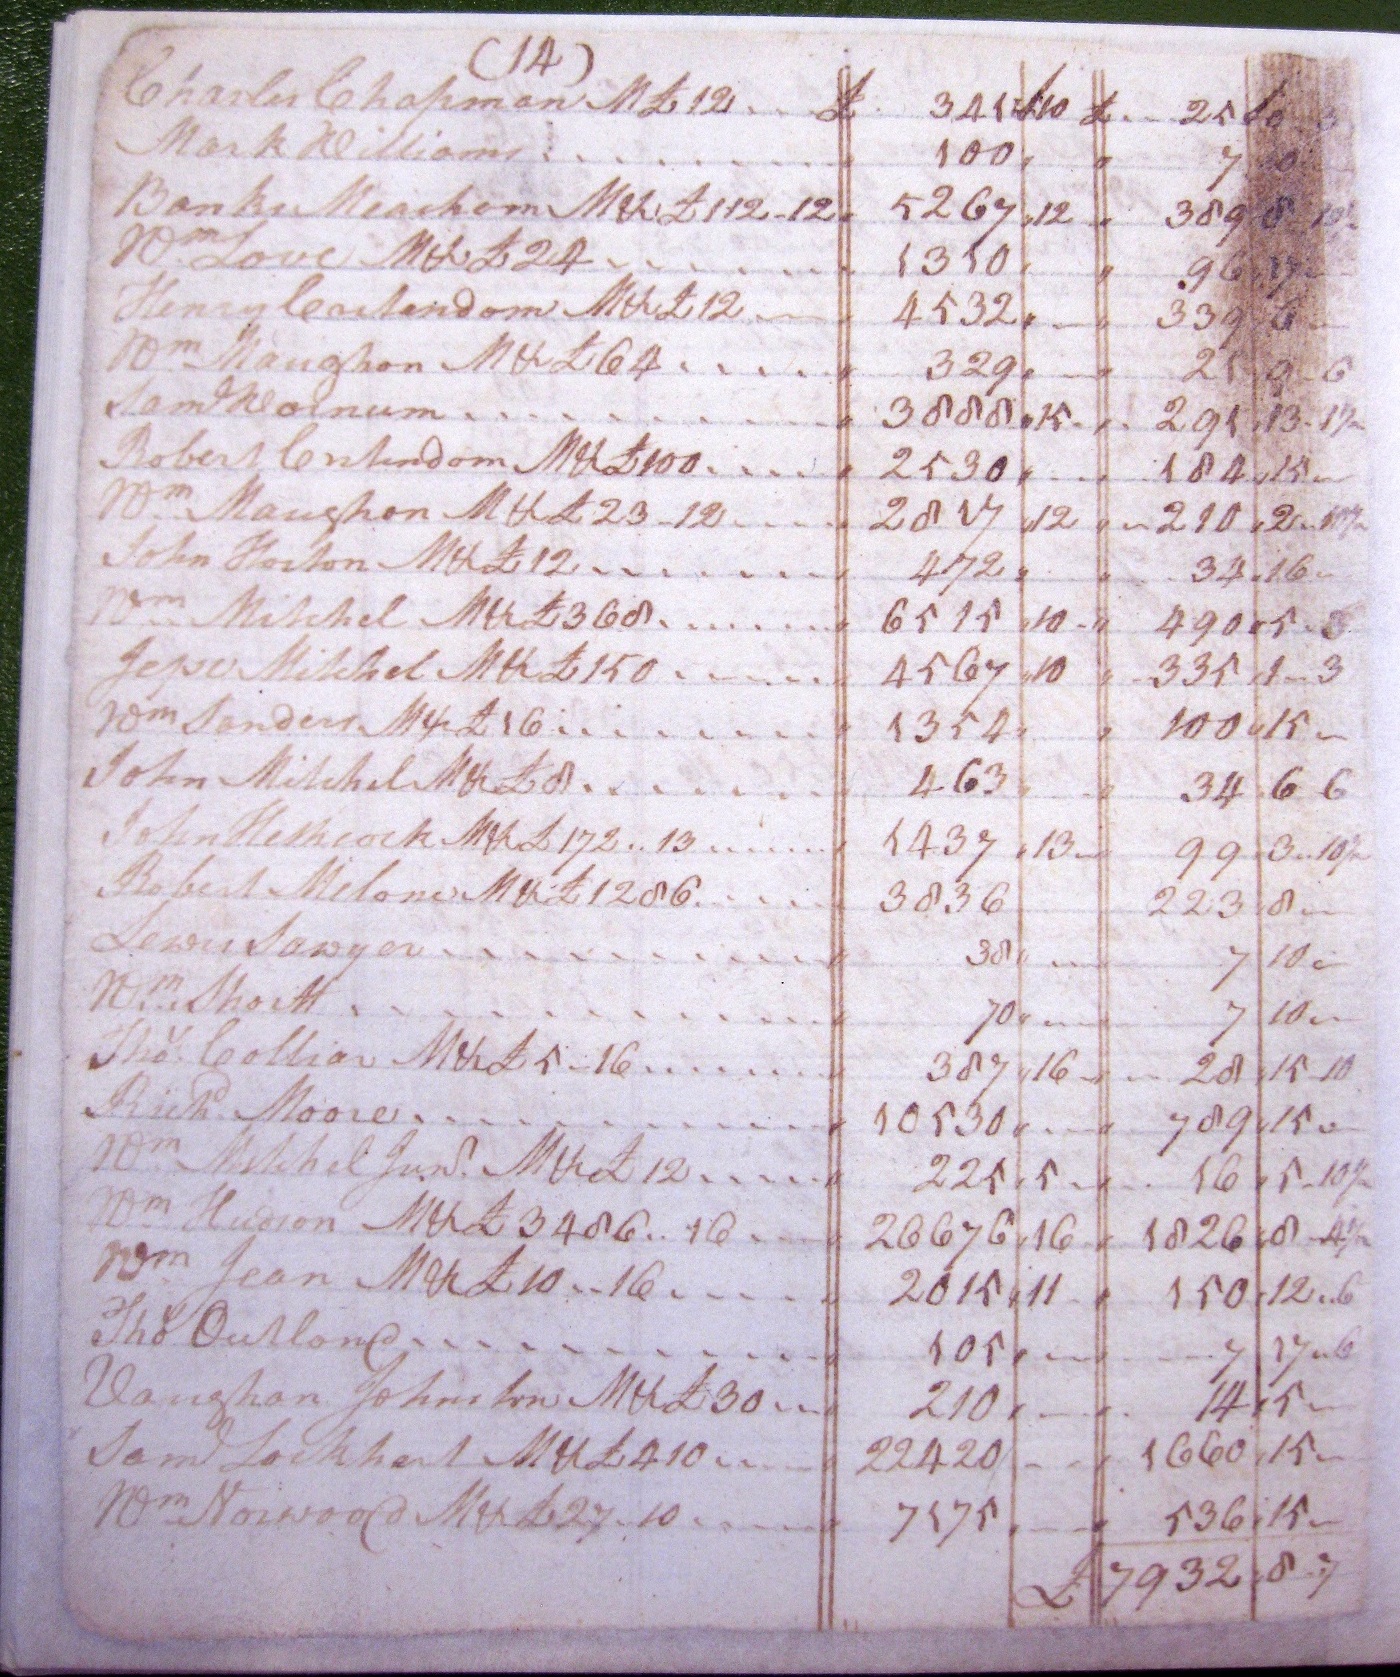 (14)
Charles Chapman M £12 £ 345 10 £ 25 3
Mark Williams 100 7 10
Banks Meacham M&c £112-12 5267 12 389 8 10½
Wm Love M&c £24 1310 96 17
Henry Crutendom M&c £12 4532 339 6
Wm Maughon M&c £64 329 25 9 6
Saml Wornum 3888 15 291 13 1½
Robert Crutendom M&c £100 2530 184 15
Wm Maughon M&c £23-12 2817 12 210 2 10½
John Horton M&c £12 472 34 16
Wm Mitchel M&c £368 6515 10 490 5 3
Jesse Mitchel M&c £150 4567 10 335 1 3
Wm Sanders M&c £16 1354 100 15
John Mitchel M&c £8 463 34 6 6
John Hethcock M&c £172..13 1437 13 99 3 10½
Robert Melone M&c £1286 3836 223 8
Lewis Sawyer 38 7 10
Wm Shortt 70 7 10
Thos. Colliar M&c £5-16 387 16 28 15 10
Richd. Moore 10530 789 15
Wm Mitchel Junr. M&c £12 225 5 16 5 10½
Wm Hudson M&c £3486..16 26676 16 1826 8 4½
Wm Jean M&c £10..16 2015 11 150 12 6
Thos Outland 105 7 17 6
Vaughan Johnston M&c £30 210 14 5
Saml Lockhart M&c £410 22420 1660 15
Wm Norwood M&c £27-10 7175 536 15
£7932 8 7